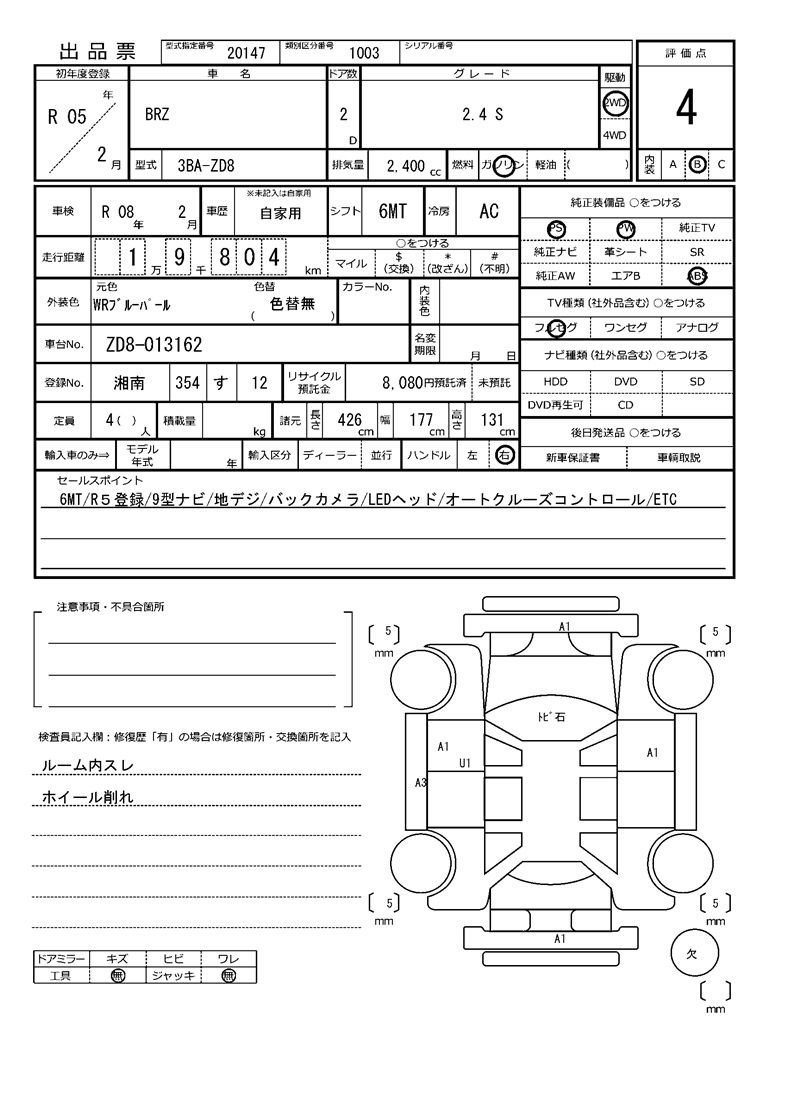 出品票
型式指定番号 20147 類別区分番号 1003 シリアル番号
評価点
4
内装 A B C
初年度登録 車名 ドア数 グレード 駆動
R 05 年 2 月
BRZ
2 D
2.4 S
2WD
4WD
型式 3BA-ZD8 排気量 2,400 cc 燃料 ガソリン 軽油 ( )
車検 R 08 年 2 月 車歴 ※未記入は自家用 自家用 シフト 6MT 冷房 AC
走行距離 1 万 9 千 8 0 4 km
○をつける
マイル $ (交換) * (改ざん) # (不明)
外装色 元色 WRブルーパール 色替 ( 色替無 ) カラーNo. 内装色
車台No. ZD8-013162 名変期限 月 日
登録No. 湘南 354 す 12 リサイクル預託金 8,080円預託済 未預託
定員 4 ( ) 人 積載量 kg 諸元 長さ 426 cm 幅 177 cm 高さ 131 cm
輸入車のみ⇒ モデル年式 年 輸入区分 ディーラー 並行 ハンドル 左 右
純正装備品 ○をつける
PS PW 純正TV
純正ナビ 革シート SR
純正AW エアB ABS
TV種類 (社外品含む) ○をつける
フルセグ ワンセグ アナログ
ナビ種類 (社外品含む) ○をつける
HDD DVD SD
DVD再生可 CD
後日発送品 ○をつける
新車保証書 車輌取説
セールスポイント
6MT/R5登録/9型ナビ/地デジ/バックカメラ/LEDヘッド/オートクルーズコントロール/ETC
注意事項・不具合箇所
検査員記入欄：修復歴「有」の場合は修復箇所・交換箇所を記入
ルーム内スレ
ホイール削れ
ドアミラー キズ ヒビ ワレ
工具 無 ジャッキ 無
A1
5 mm
5 mm
トビ石
A1
U1
A1
A3
5 mm
5 mm
A1
欠
mm